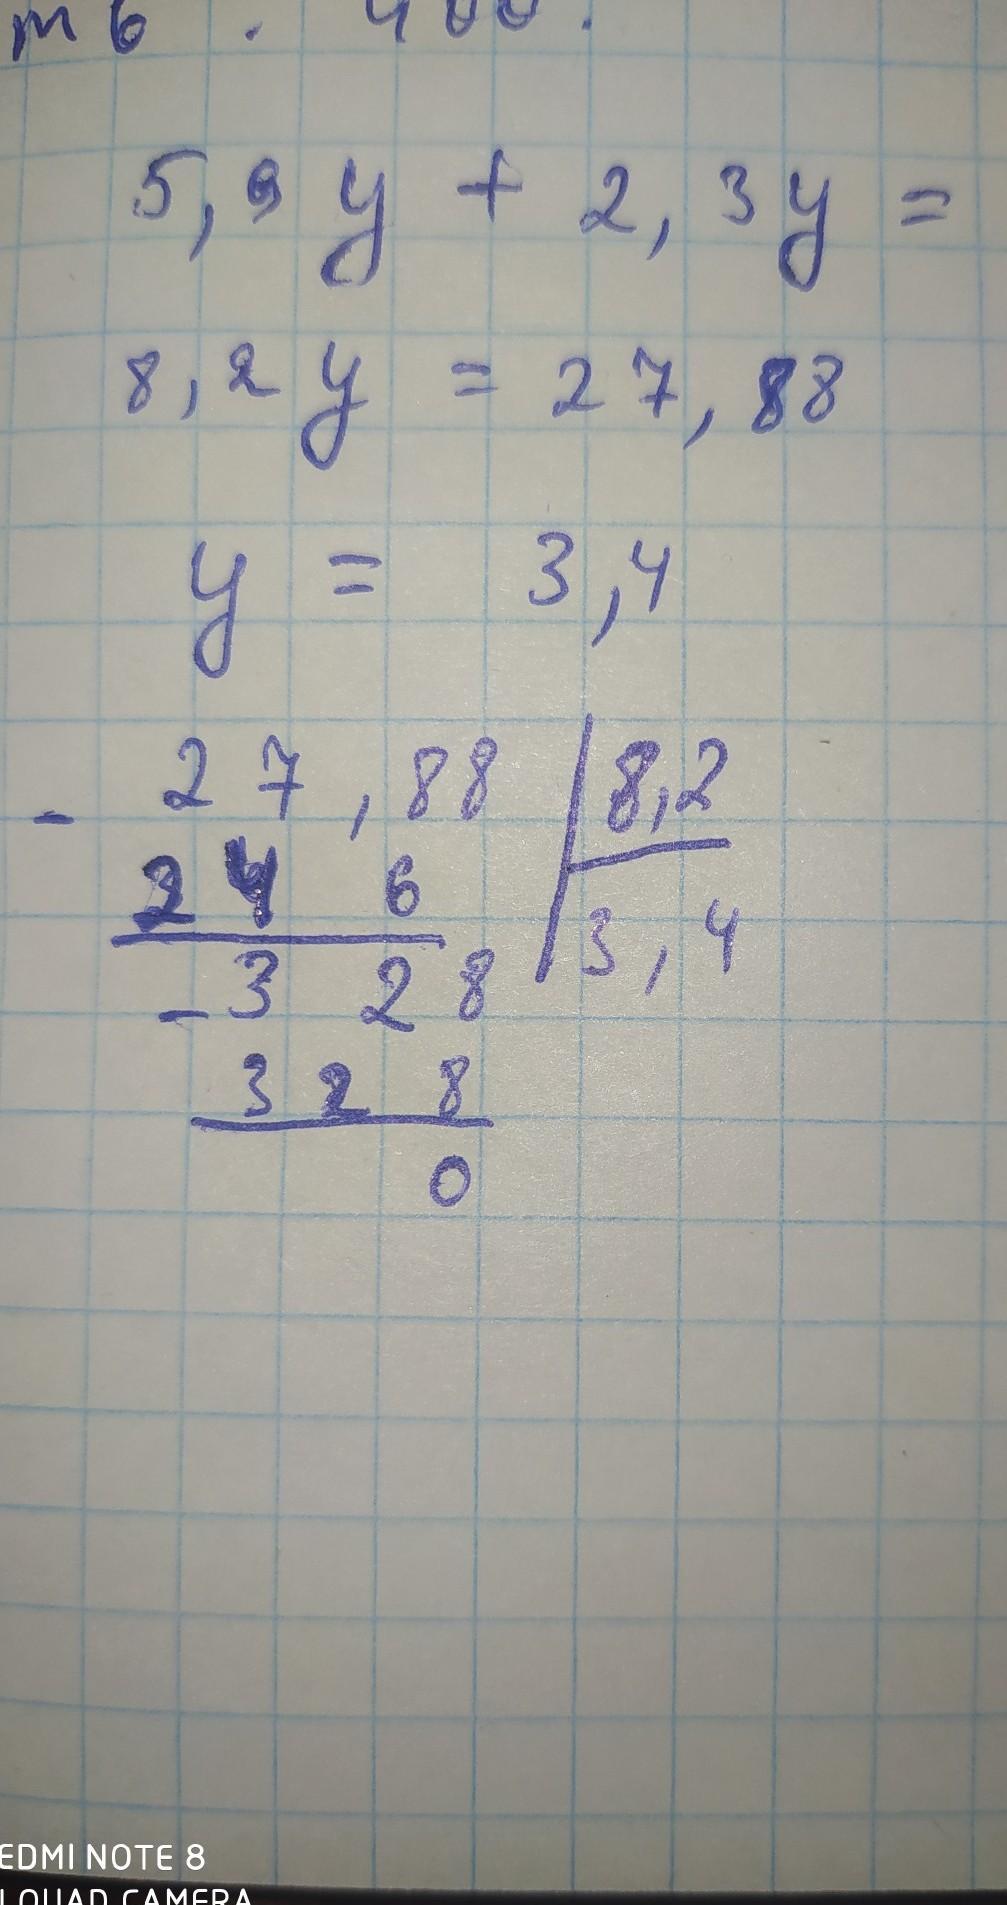 5,9y + 2,3y =
8,2y = 27,88
y = 3,4
- 27,88 | 8,2
24 6 | 3,4
- 3 2 8
3 2 8
0
EDMI NOTE 8
QUAD CAMERA